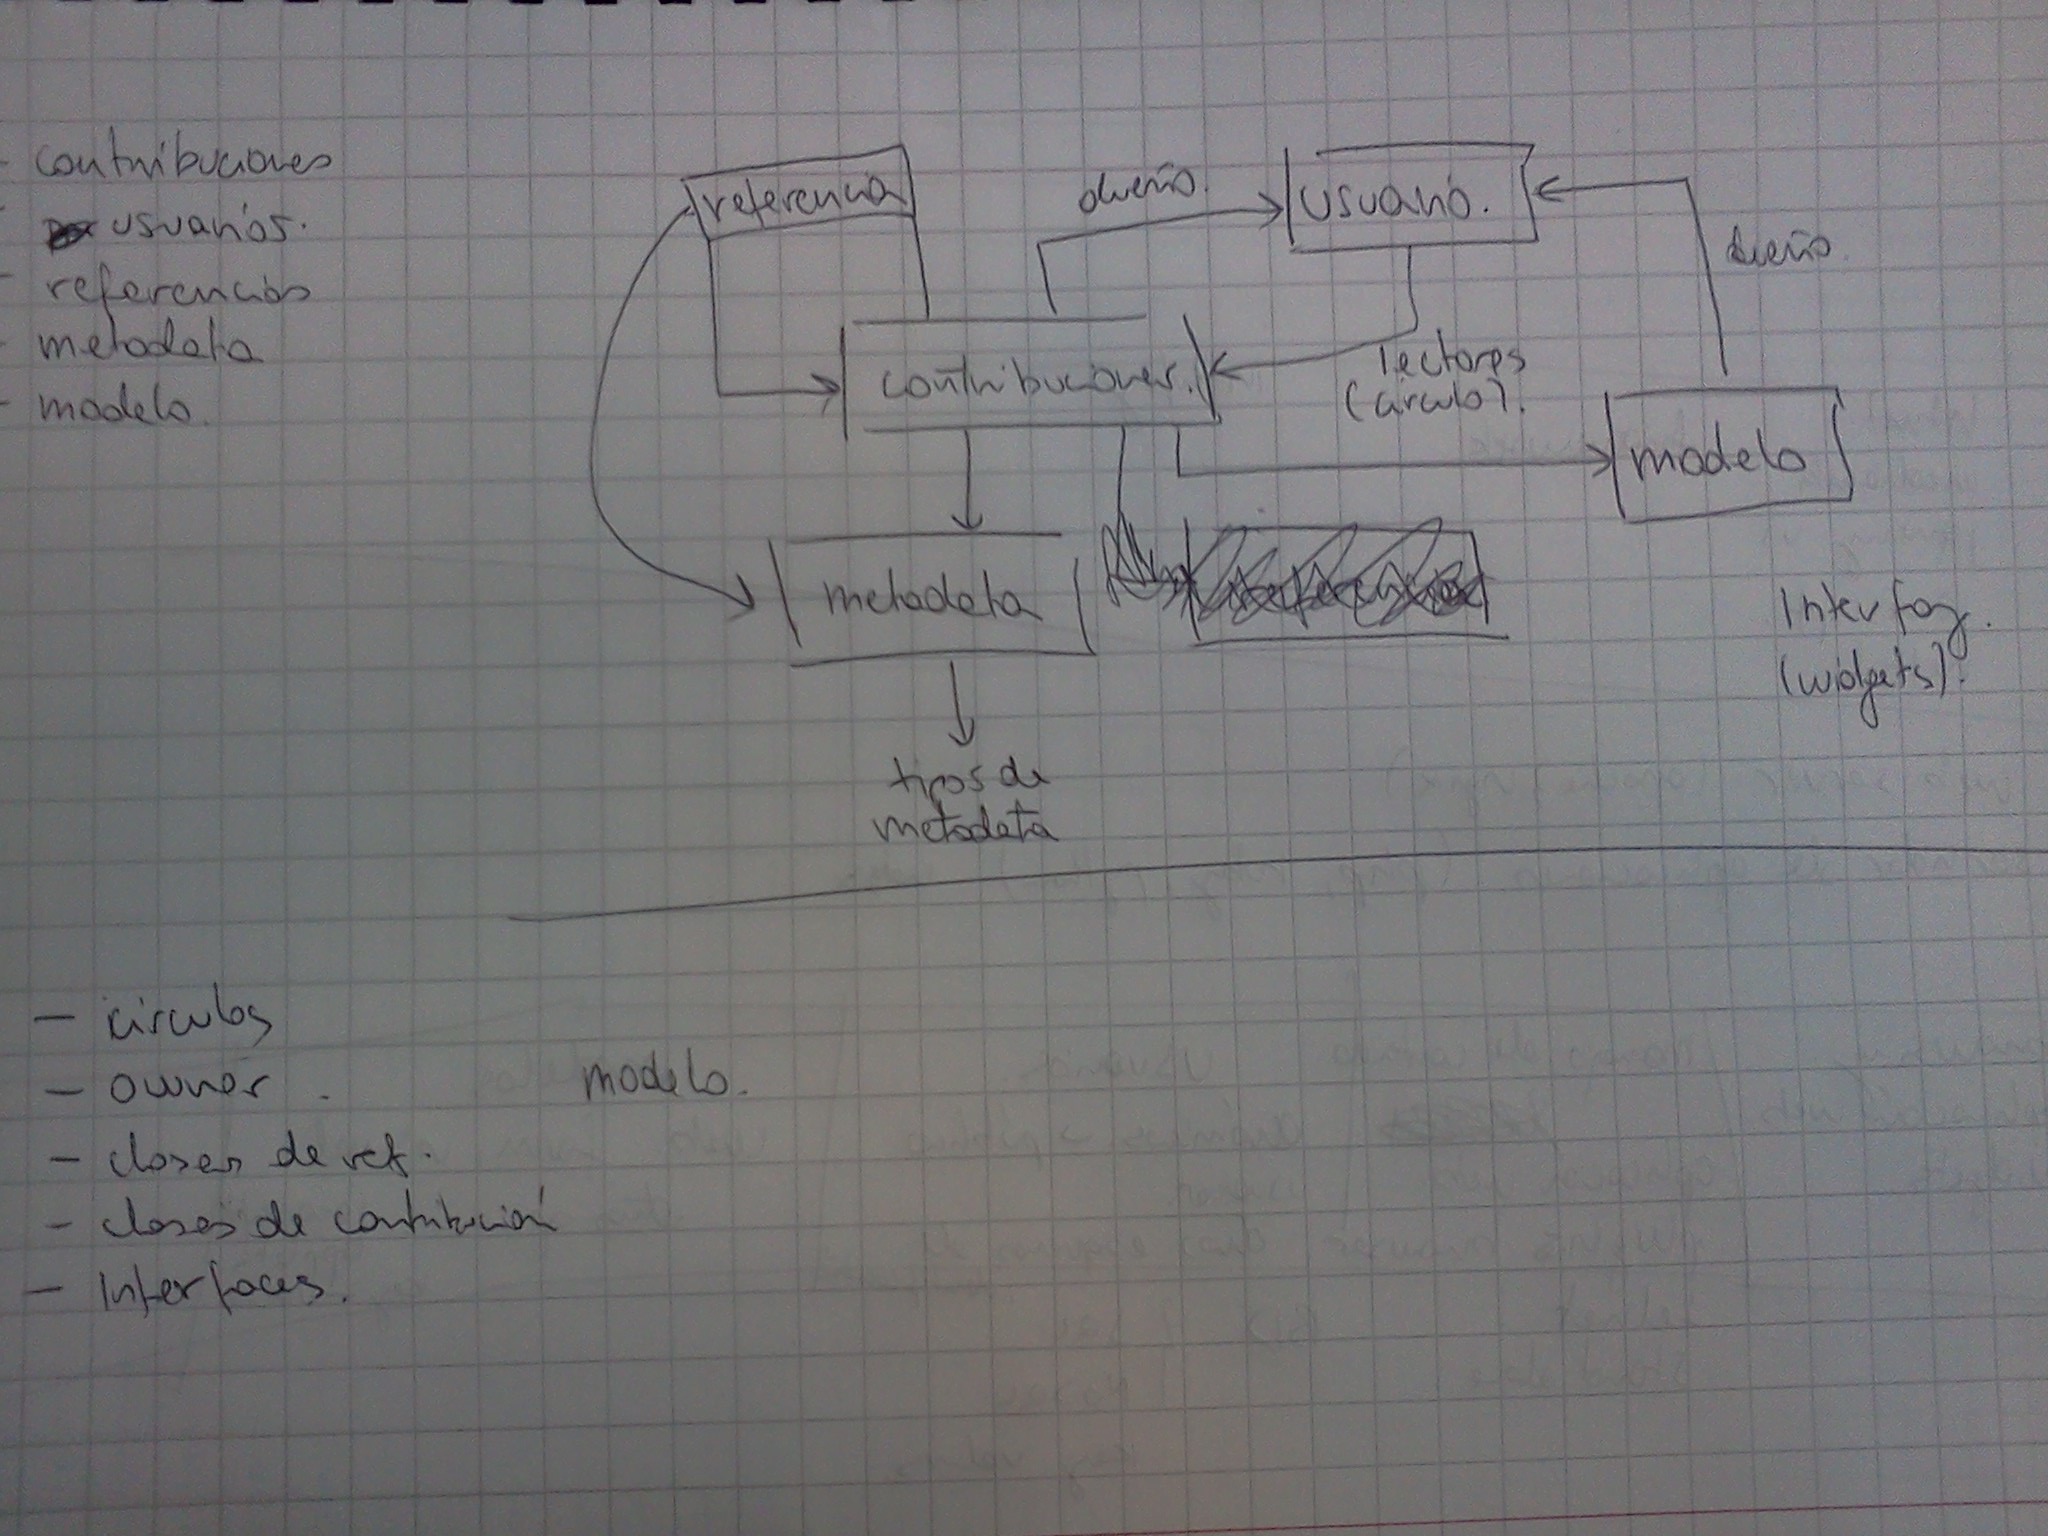 - contribuciones
- usuarios.
- referencias
- metadata
- modelo.
referencia
dueño.
usuario.
dueño.
contribuciones.
lectores
(círculo).
modelo
metadata
Interfaz.
(widgets).
tipos de
metadata
- círculos
- owner.
modelo.
- clases de ref.
- clases de contribución
- Interfaces.